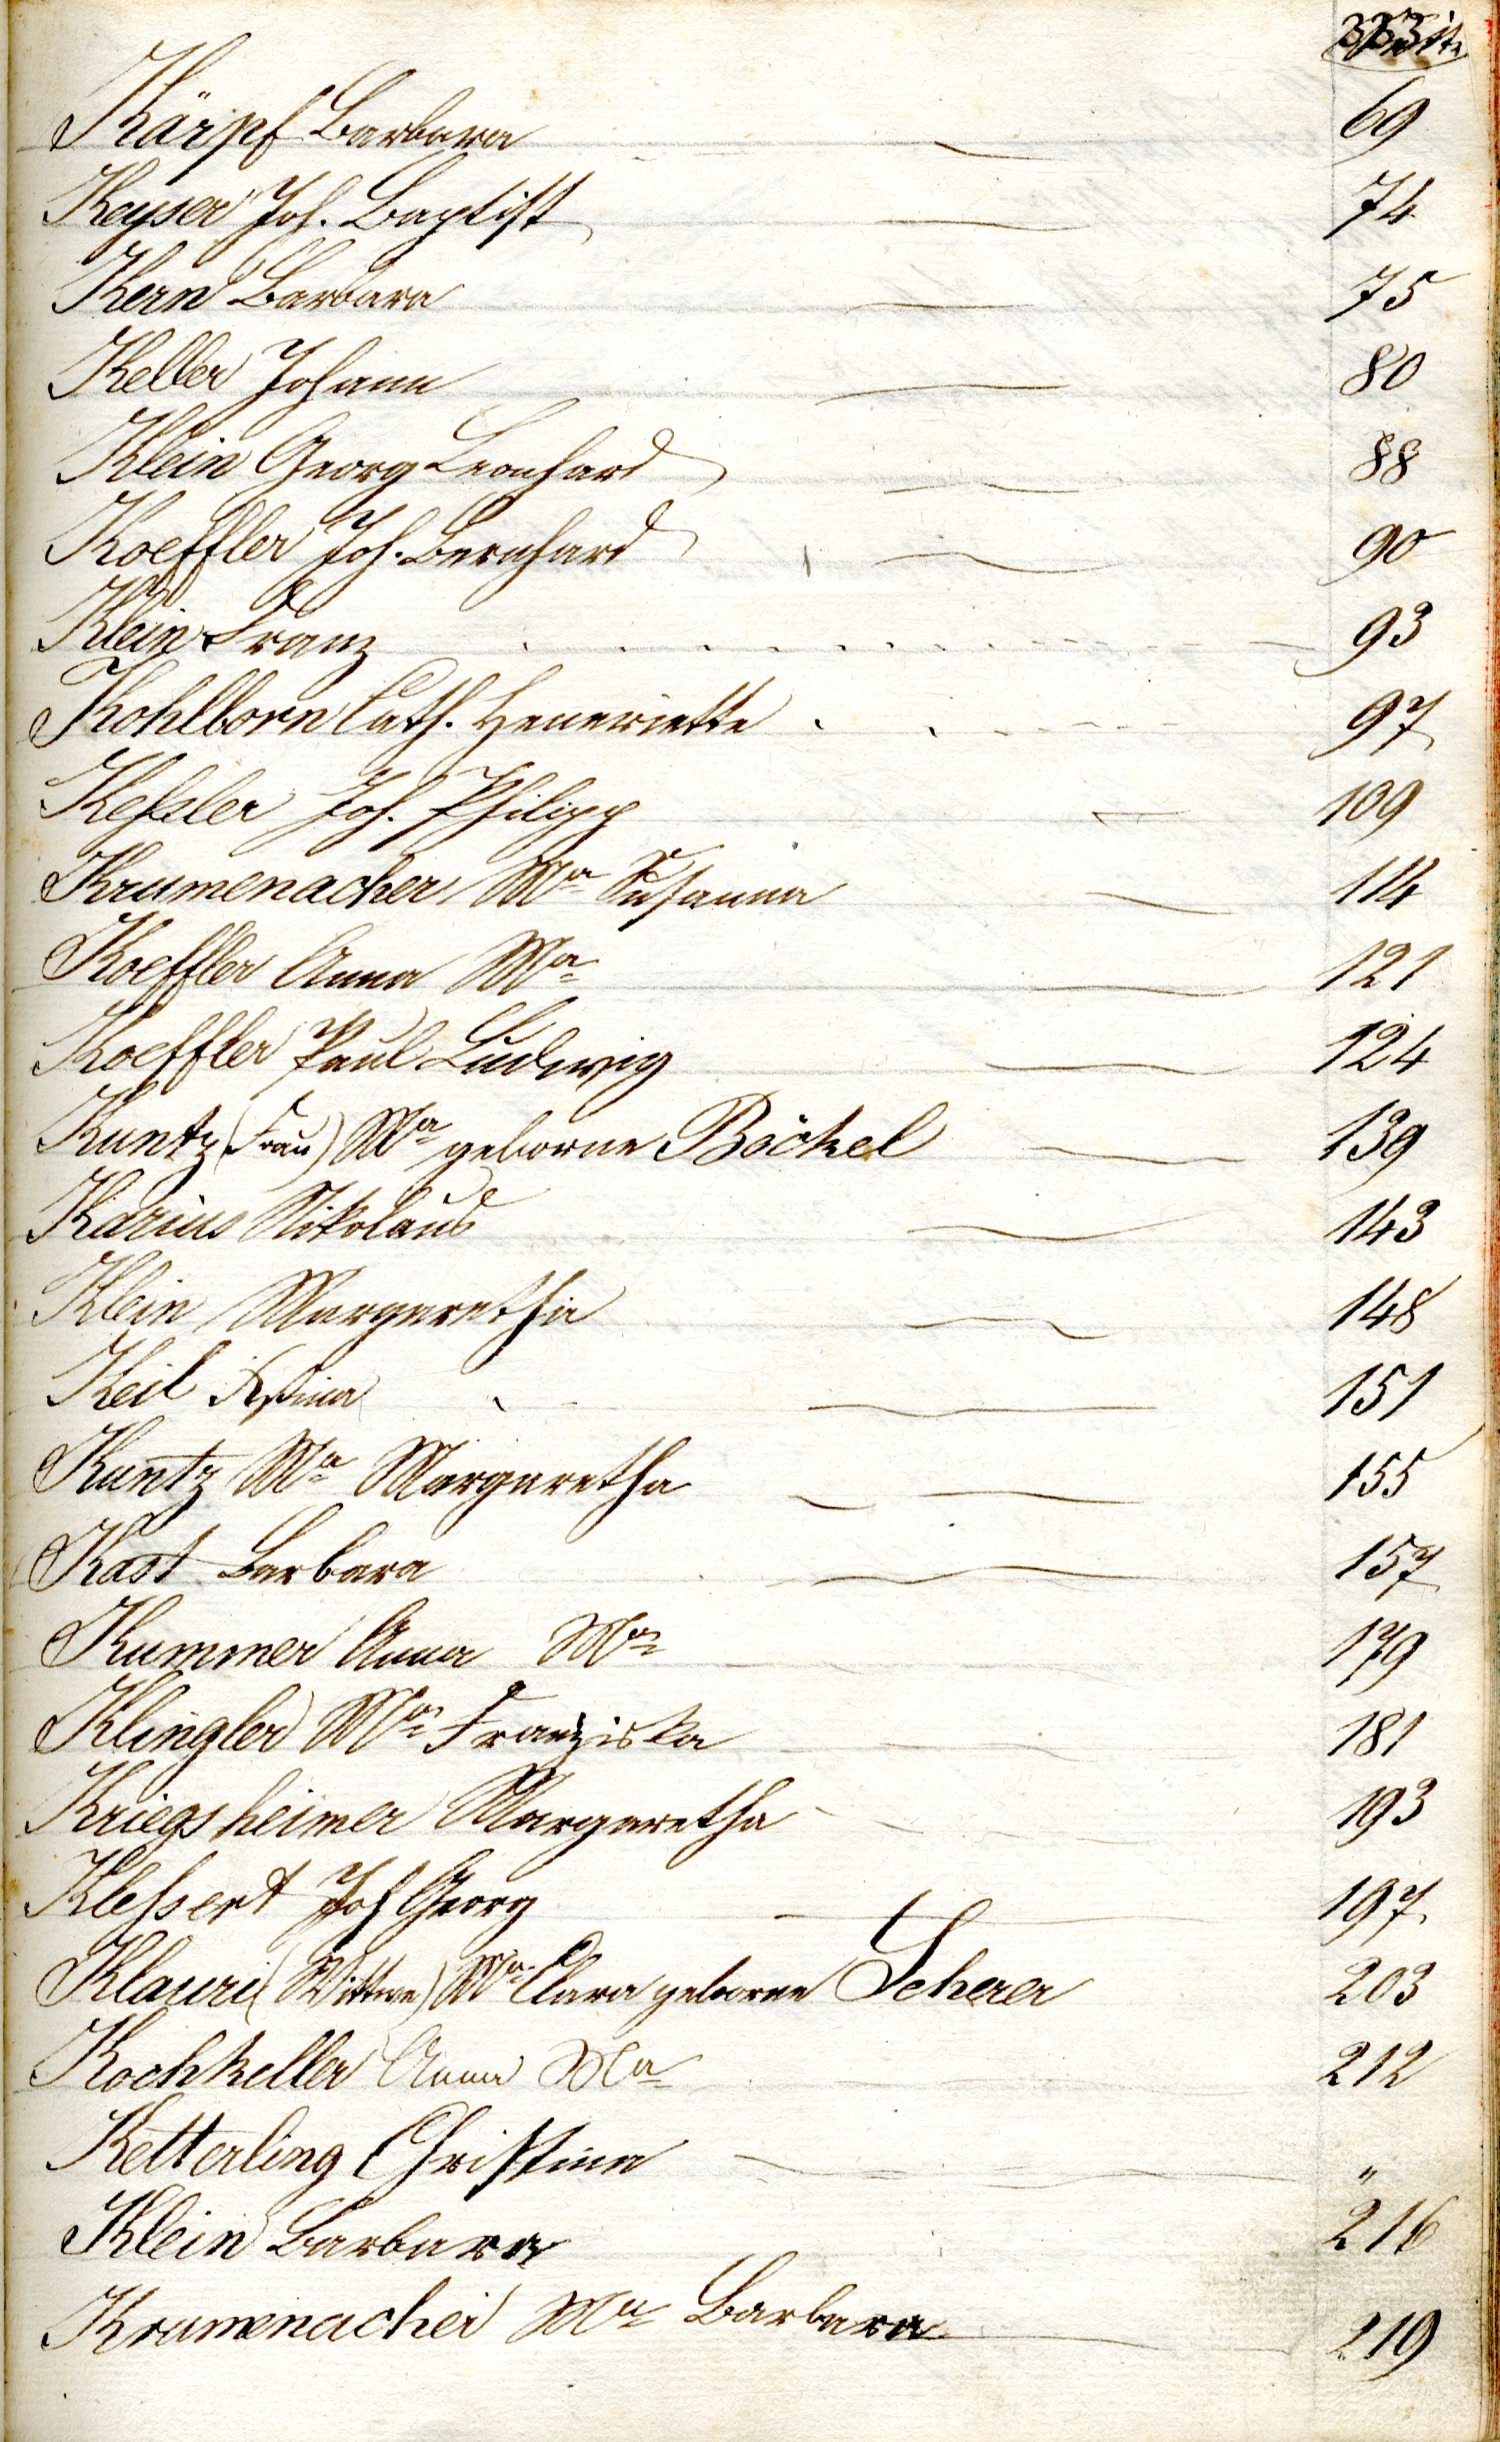 Kärpf Barbara 69
Keyser Joh. Baptist 74
Kern Barbara 75
Keller Johann 80
Klein Georg Leonhard 88
Koeffler Joh. Bernhard 90
Klein Franz 93
Kohlborn Cath. Henriette 97
Keßler Joh. Philipp 109
Krumenacher Ma Susanna 114
Koeffler Anna Ma 121
Koeffler Paul Ludwig 124
Kuntz (Frau) Ma geborne Böckel 139
Karius Nikolaus 143
Klein Margaretha 148
Keil 151
Kuntz Ma Margaretha 155
Kast Barbara 157
Kummer Anna Ma 179
Klingler Ma Franziska 181
Kriegsheimer Margaretha 193
Kleßert Joh Georg 197
Klauri (Wittwe) Ma Clara geborne Scherer 203
Kochkeller Anna Ma 212
Ketterling Christina "
Klein Barbara 216
Krumenacher Ma Barbara 219